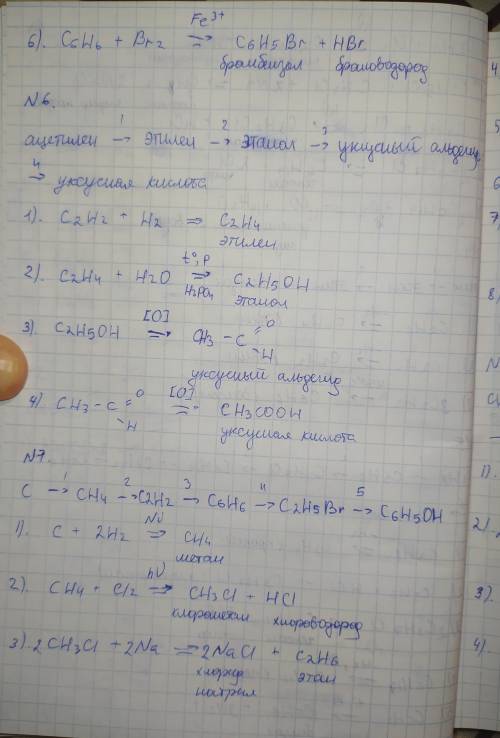 Fe³⁺
6). C6H6 + Br2 ⇒ C6H5Br + HBr
бромбензол бромоводород
N6.
ацетилен →¹ этилен →² этанол →³ уксусный альдегид
⁴→ уксусная кислота
1). C2H2 + H2 ⇒ C2H4
этилен
t°, p
2). C2H4 + H2O ⇒ C2H5OH
H3PO4 этанол
[O]
3). C2H5OH ⇒ CH3 - C =O
H
уксусный альдегид
4) CH3 - C =O [O] ⇒ CH3COOH
H
уксусная кислота
N7.
C →¹ CH4 →² C2H2 →³ C6H6 →⁴ C2H5Br →⁵ C6H5OH
Ni
1). C + 2H2 ⇒ CH4
метан
hν
2). CH4 + Cl2 ⇒ CH3Cl + HCl
хлорметан хлороводород
3). 2CH3Cl + 2Na ⇒ 2NaCl + C2H6
хлорид этан
натрия